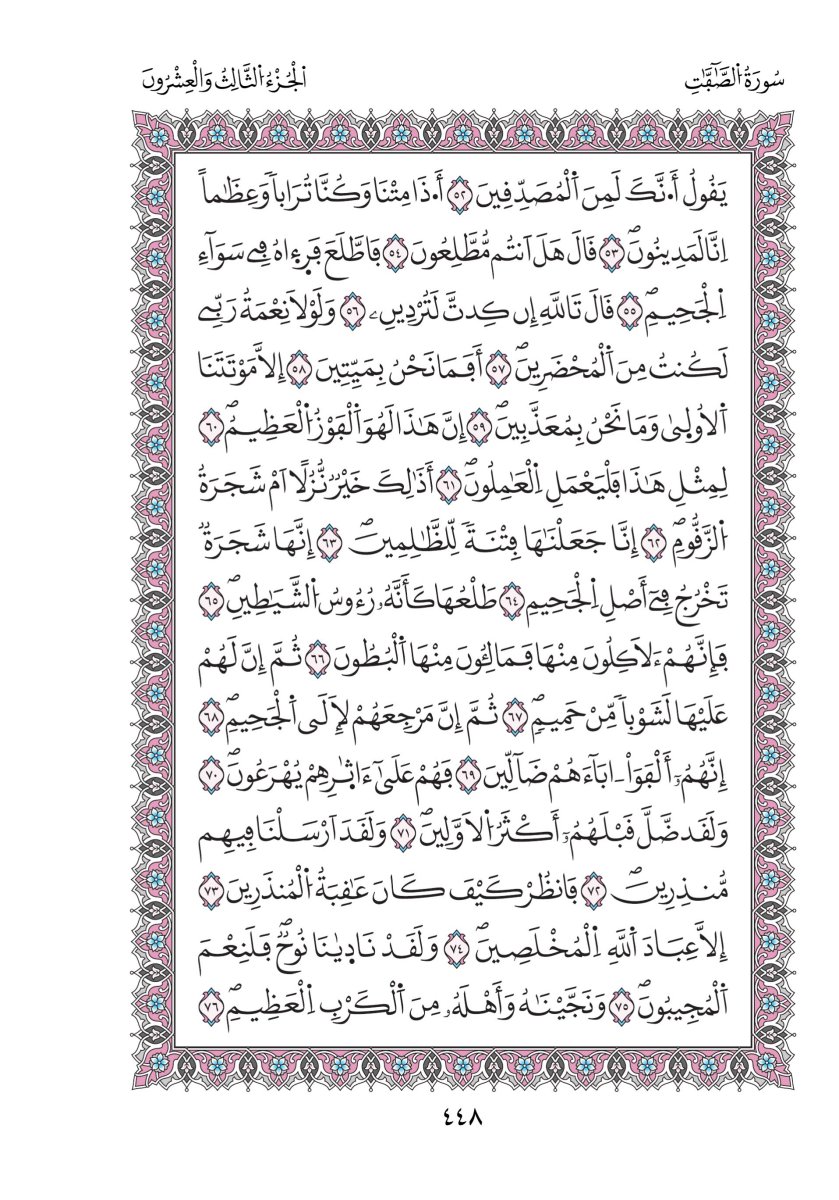 سُورَةُ اُ۬لصَّٰٓفَّٰتِ
اَ۬لْجُزْءُ اُ۬لثَّالِثُ وَالْعِشْرُونَ
يَقُولُ أَ.نَّكَ لَمِنَ اَ۬لْمُصَدِّقِينَ ٥٢ أَ.ذَا مِتْنَا وَكُنَّا تُرَاباٗ وَعِظَٰماً
اِنَّا لَمَدِينُونَۖ ٥٣ قَالَ هَلَ اَنتُم مُّطَّلِعُونَ ٥٤ فَاطَّلَعَ فَرِء۪اهُ فِے سَوَآءِ
اِ۬لْجَحِيمِۖ ٥٥ قَالَ تَاللَّهِ إِن كِدتَّ لَتُرْدِينِۦ ٥٦ وَلَوْلَا نِعْمَةُ رَبِّے
لَكُنتُ مِنَ اَ۬لْمُحْضَرِينَۖ ٥٧ أَفَمَا نَحْنُ بِمَيِّتِينَ ٥٨ إِلَّا مَوْتَتَنَا
اَ۬لُاول۪ىٰ وَمَا نَحْنُ بِمُعَذَّبِينَۖ ٥٩ إِنَّ هَٰذَا لَهُوَ اَ۬لْفَوْزُ اُ۬لْعَظِيمُۖ ٦٠
لِمِثْلِ هَٰذَا فَلْيَعْمَلِ اِ۬لْعَٰمِلُونَۖ ٦١ أَذَٰلِكَ خَيْرٞ نُّزُلًا اَمْ شَجَرَةُ
اُ۬لزَّقُّومِۖ ٦٢ إِنَّا جَعَلْنَٰهَا فِتْنَةٗ لِّلظَّٰلِمِينَۖ ٦٣ إِنَّهَا شَجَرَةٞ
تَخْرُجُ فِےٓ أَصْلِ اِ۬لْجَحِيمِ ٦٤ طَلْعُهَا كَأَنَّهُۥ رُءُوسُ اُ۬لشَّيَٰطِينِۖ ٦٥
فَإِنَّهُمْ ءَلَاكِلُونَ مِنْهَا فَمَالِـُٔونَ مِنْهَا اَ۬لْبُطُونَ ٦٦ ثُمَّ إِنَّ لَهُمْ
عَلَيْهَا لَشَوْباٗ مِّنْ حَمِيمٖۖ ٦٧ ثُمَّ إِنَّ مَرْجِعَهُمْ لَإِلَى اَ۬لْجَحِيمِۖ ٦٨
إِنَّهُمُۥٓ أَلْفَوَاْ اٰبَآءَهُمْ ضَآلِّينَ ٦٩ فَهُمْ عَلَىٰٓ ءَاثٰ۪رِهِمْ يُهْرَعُونَۖ ٧٠
وَلَقَد ضَّلَّ قَبْلَهُمُۥٓ أَكْثَرُ اُ۬لَاوَّلِينَۖ ٧١ وَلَقَدَ اَرْسَلْنَا فِيهِم
مُّنذِرِينَۖ ٧٢ فَانظُرْ كَيْفَ كَانَ عَٰقِبَةُ اُ۬لْمُنذَرِينَ ٧٣
إِلَّا عِبَادَ اَ۬للَّهِ اِ۬لْمُخْلَصِينَۖ ٧٤ وَلَقَدْ نَاد۪يٰنَا نُوحٞۖ فَلَنِعْمَ
اَ۬لْمُجِيبُونَۖ ٧٥ وَنَجَّيْنَٰهُ وَأَهْلَهُۥ مِنَ اَ۬لْكَرْبِ اِ۬لْعَظِيمِۖ ٧٦
٤٤٨